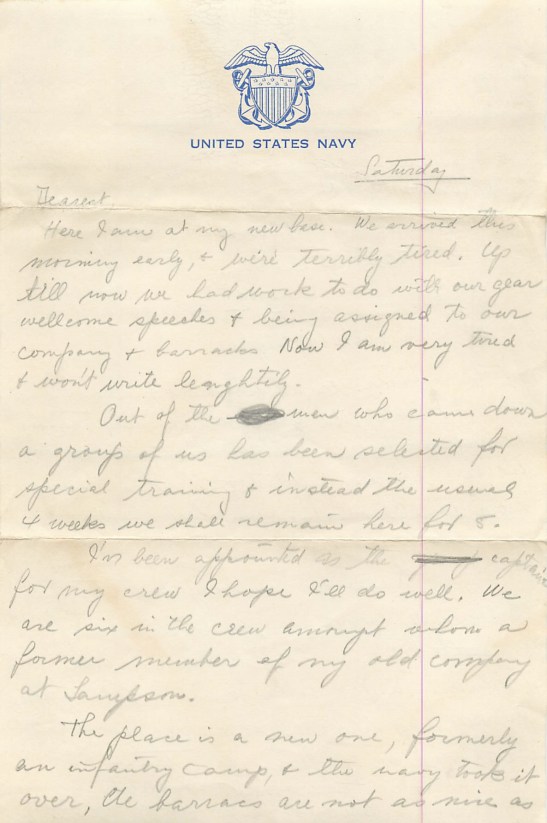 UNITED STATES NAVY
Saturday
Dearest,
Here I am at my new base. We arrived this
morning early, & we're terribly tired. Up
till now we had work to do with our gear
wellcome speeches & being assigned to our
company & barracks Now I am very tired
& won't write lenghtily.
Out of the men who came down
a group of us has been selected for
special training & instead the usual
4 weeks we shall remain here for 8.
I'm been appointed as the captain
for my crew I hope I'll do well. We
are six in the crew amongst whom a
former member of my old company
at Sampson.
The place is a new one, formerly
an infantry camp, & the navy took it
over, the barracs are not as nice as